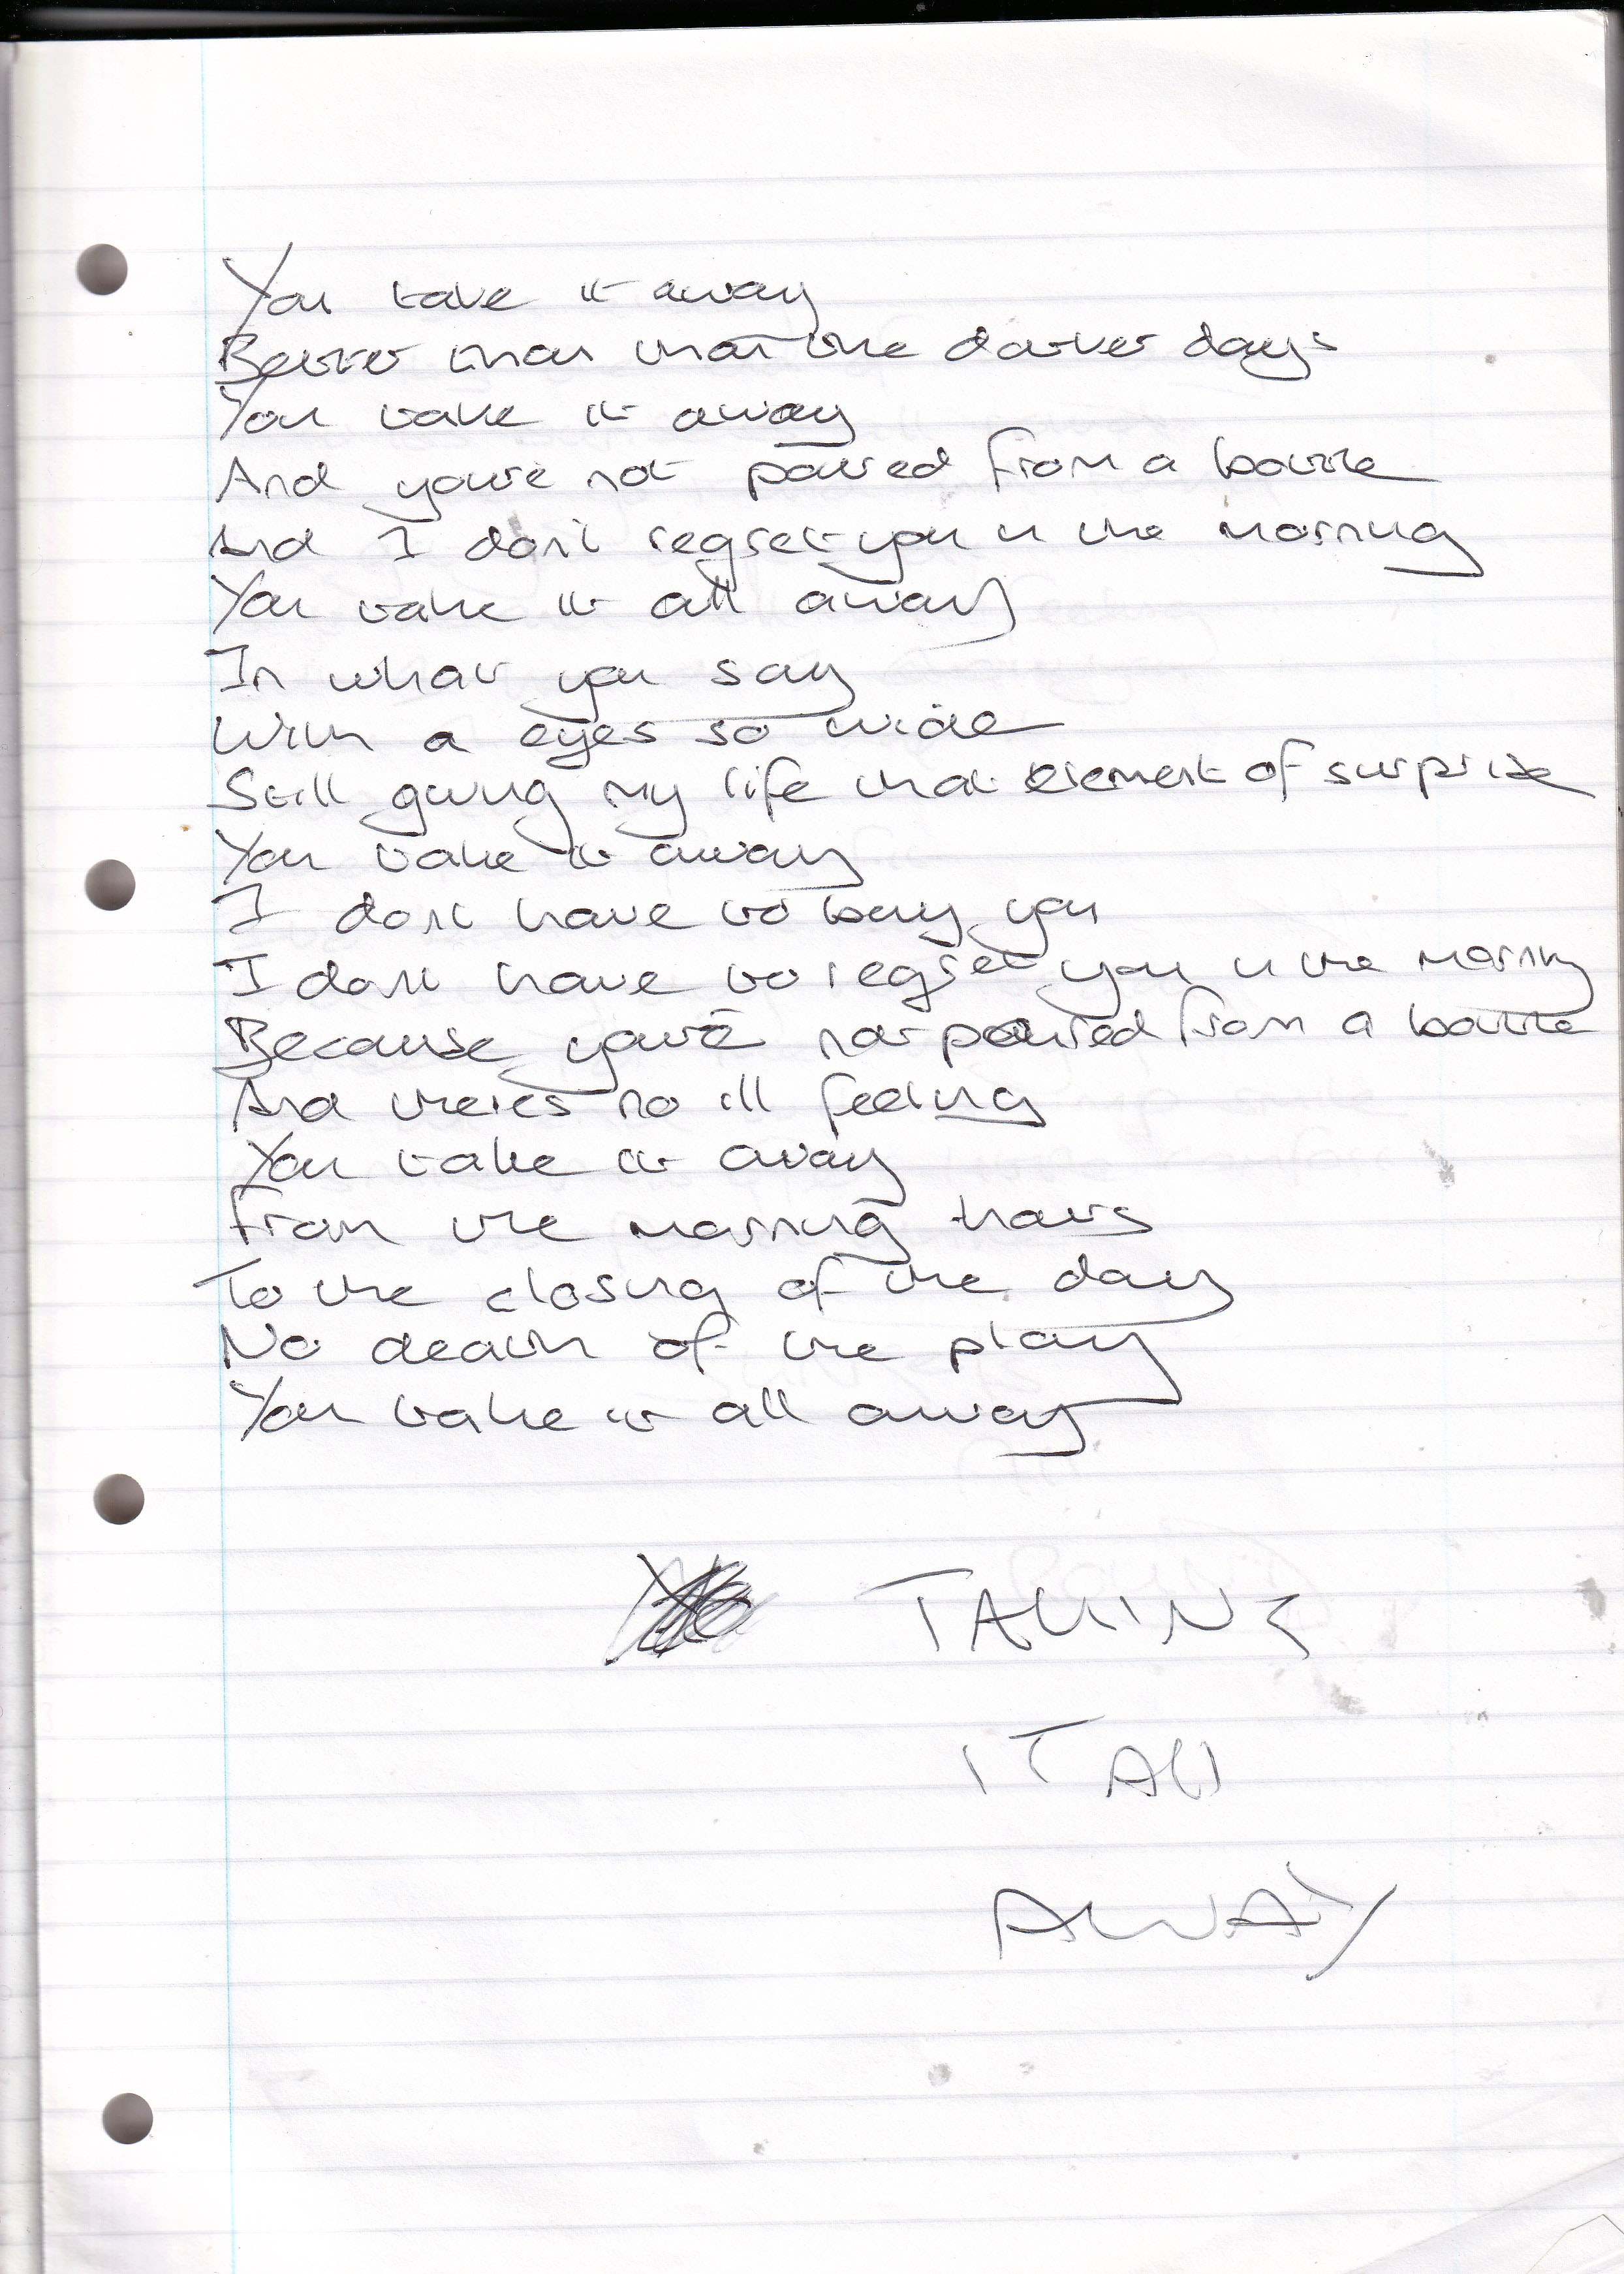 You take it away
Better than that the darker days
You take it away
And you're not poured from a bottle
And I don't regret you in the morning
You take it all away
In what you say
With a eyes so wide
Still giving my life that element of surprise
You take it away
I don't have to buy you
I don't have to regret you in the morning
Because you're not poured from a bottle
And there's no ill feeling
You take it away
From the morning hours
To the closing of the day
No death of the play
You take it all away
TAKING
IT ALL
AWAY